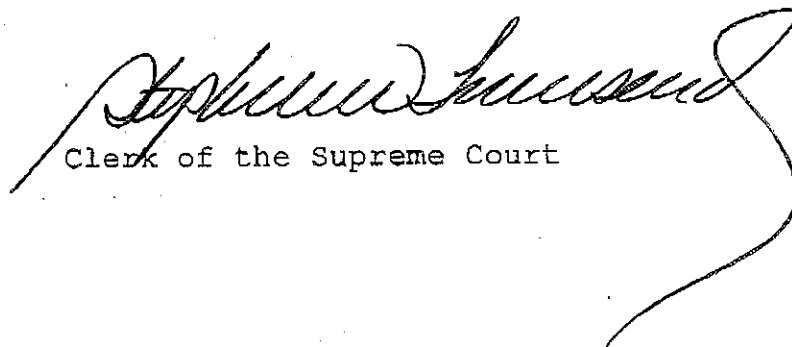 Stephen Townsend
Clerk of the Supreme Court